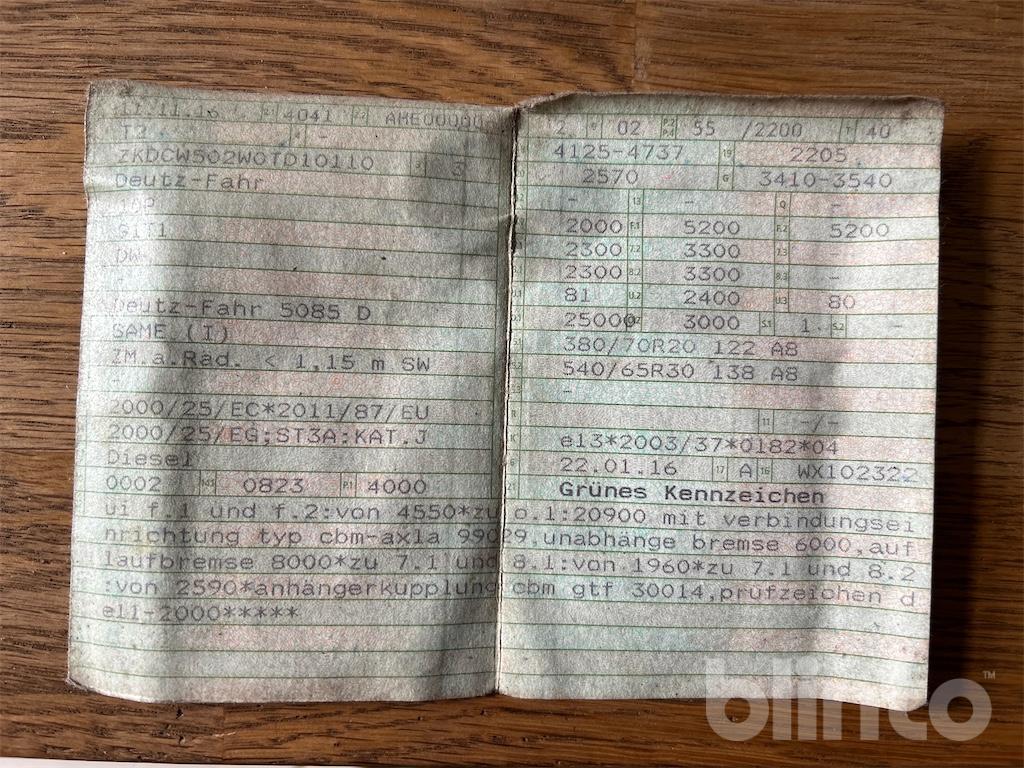 4041 AHE00000
T2 - 
ZKDCW502W0TD10110 3
Deutz-Fahr
-
Deutz-Fahr 5085 D
SAME (I)
ZM.a.Rad. < 1,15 m SW
-
2000/25/EC*2011/87/EU
2000/25/EG;ST3A:KAT.J
Diesel
0002 14.1 0823 P.1 4000
2 9 02 P.2 P.4 55 /2200 T 40
4125-4737 19 2205
2570 G 3410-3540
- 13 - Q -
2000 F.1 5200 F.2 5200
2300 7.2 3300 7.3 -
2300 8.2 3300 8.3 -
81 U.2 2400 U.3 80
25000 3000 S.1 1 S.2 -
380/70R20 122 A8
540/65R30 138 A8
-
- 11 -/-
e13*2003/37*0182*04
22.01.16 17 A 16 WX102322
Grünes Kennzeichen
ui f.1 und f.2:von 4550*zu o.1:20900 mit verbindungsei
nrichtung typ cbm-ax1a 99029,unabhänge bremse 6000,auf
laufbremse 8000*zu 7.1 und 8.1:von 1960*zu 7.1 und 8.2
:von 2590*anhängerkupplung cbm gtf 30014,prüfzeichen d
e11-2000*****
blinto™